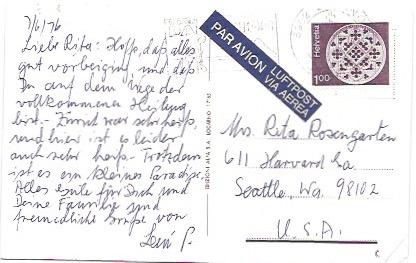 7/6/76
Liebe Rita: Hoffe, daß alles
gut vorbeiging und daß
Du auf dem Wege der
vollkommenen Heilung
bist. - Zürich war sehr heiß,
und hier ist es leider
auch sehr heiß - Trotzdem
ist es ein kleines Paradies.
Alles Gute für Dich und
Deine Familie und
freundliche Grüße von
PAR AVION LUFTPOST
VIA AEREA
Helvetia
100
Mrs. Rita Rosengarten
611 Harvard Ea
Seattle, Wa. 98102
U.S.A.